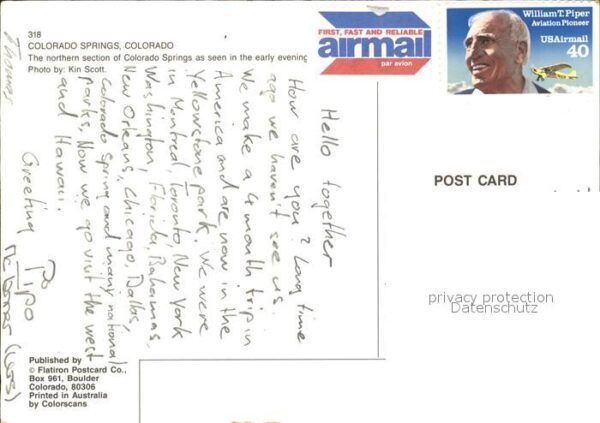 318
COLORADO SPRINGS, COLORADO
The northern section of Colorado Springs as seen in the early evening
Photo by: Kin Scott.
FIRST, FAST AND RELIABLE
airmail
par avion
William T. Piper
Aviation Pioneer
USAirmail
40
POST CARD
privacy protection
Datenschutz
Thomas
Hello together
How are you? Long time
ago we haven't see us.
We make a 4 month trip in
America and are now in the
Yellowstone park. We were
in Montreal, Toronto, New York
Washington, Florida, Bahamas,
New Orleans, Chicago, Dallas,
Colorado Spring and many national
parks, Now we go visit the west
and Hawaii.
Greeting Pipo
Published by
© Flatiron Postcard Co.,
Box 961, Boulder
Colorado, 80306
Printed in Australia
by Colorscans